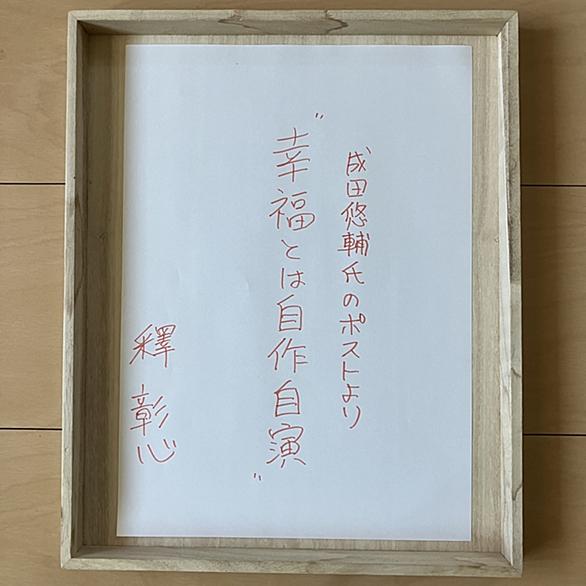 成田悠輔氏のポストより
"幸福とは自作自演"
釋 彰心